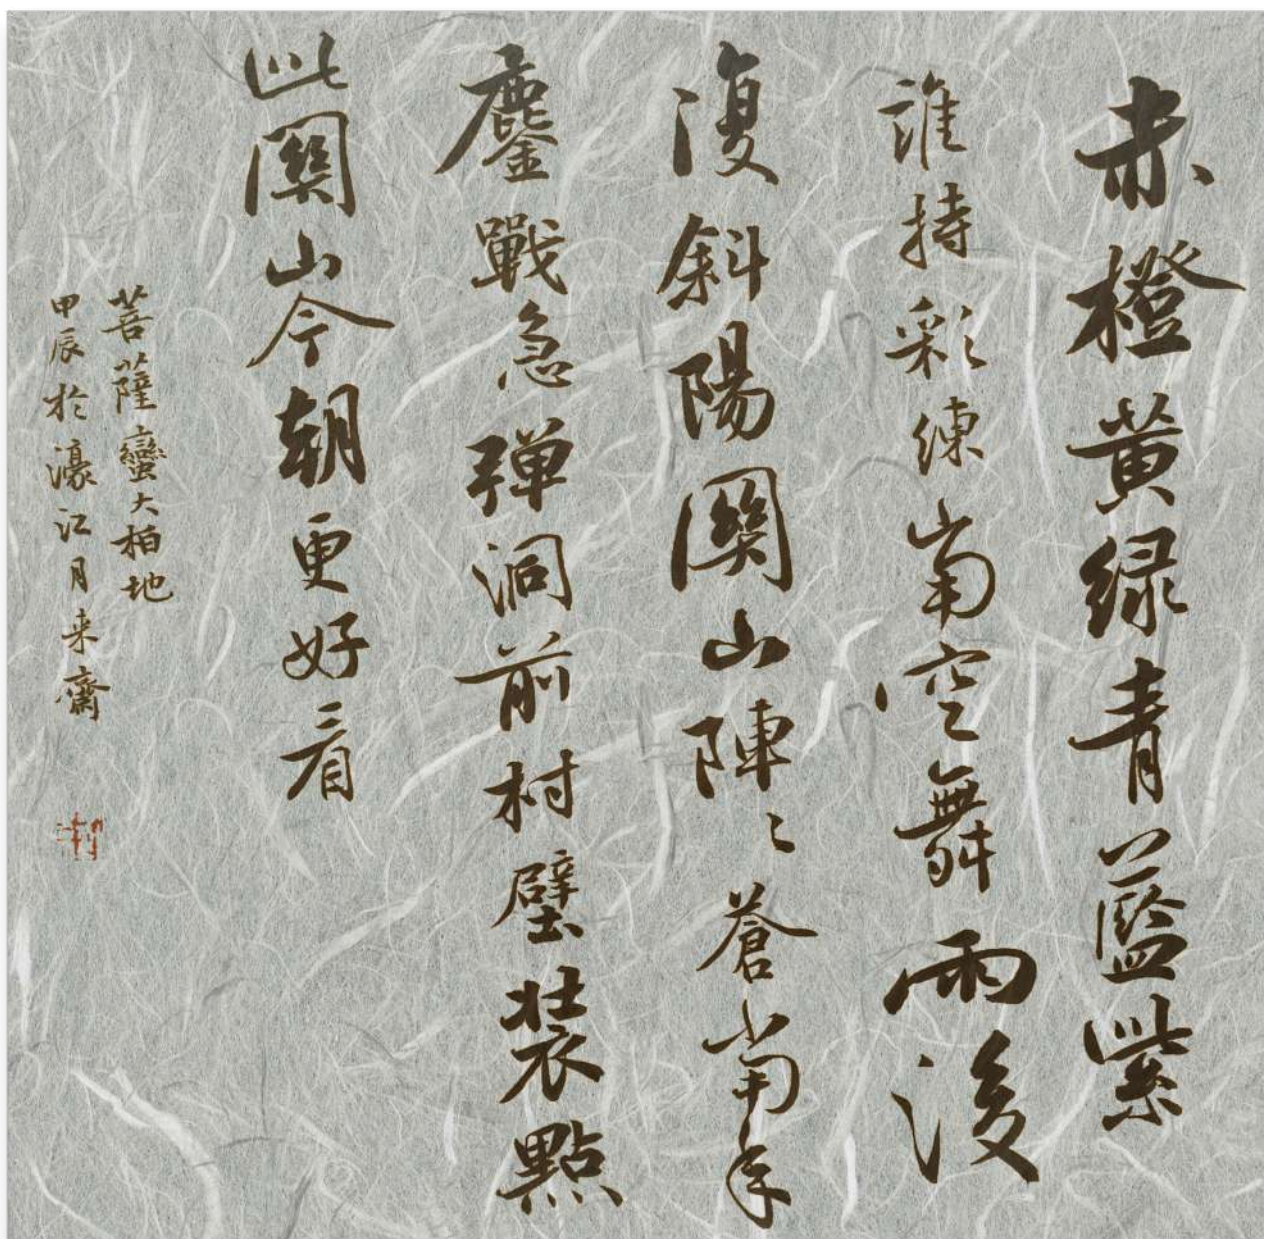 赤橙黄绿青藍紫
誰持彩練當空舞雨後
復斜陽關山陣〻蒼當年
鏖戰急彈洞前村壁装點
此關山今朝更好看
菩薩蠻大柏地
甲辰於濠江月来齋